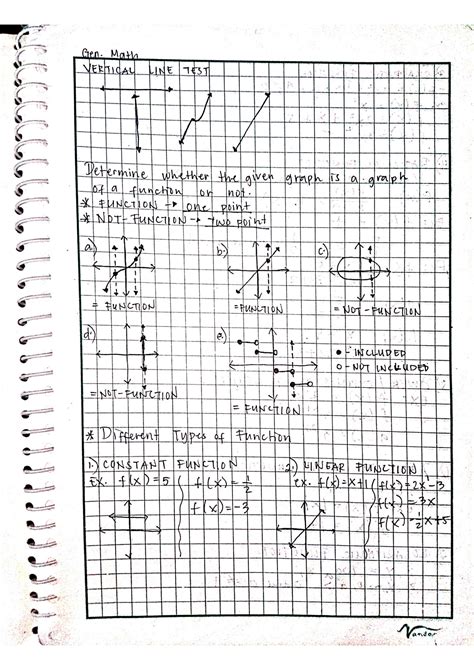 Gen. Math
VERTICAL LINE TEST
Determine whether the given graph is a graph
of a function or not.
* FUNCTION → one point
* NOT-FUNCTION → two point
a)
b)
c)
= FUNCTION
= FUNCTION
= NOT-FUNCTION
d)
e)
●-INCLUDED
○-NOT INCLUDED
= NOT-FUNCTION
= FUNCTION
* Different Types of Function
1.) CONSTANT FUNCTION
Ex. f(x)=5
f(x)=1/2
f(x)=-3
2.) LINEAR FUNCTION
Ex. f(x)=x+1
f(x)=2x-3
f(x)=3x
f(x)=1/2x+5